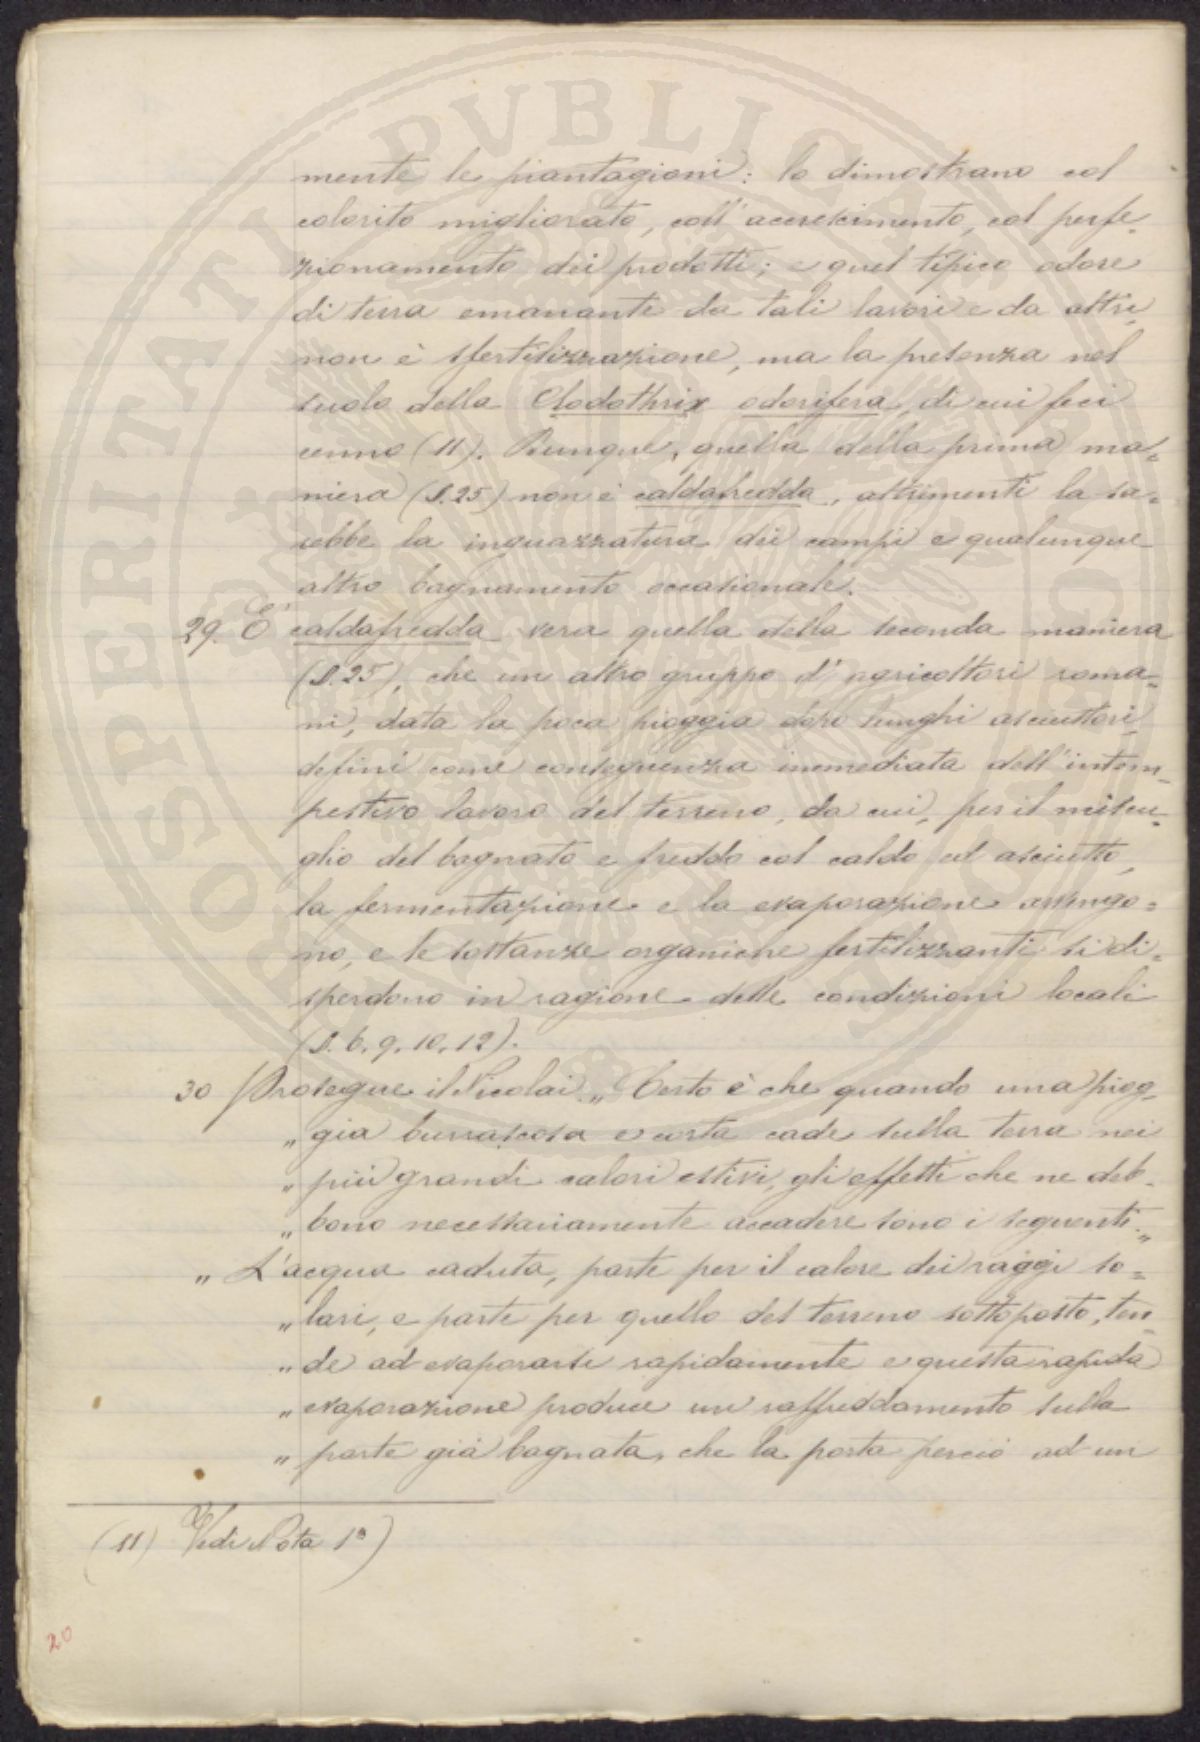 mente le piantagioni: lo dimostrano col
colorito migliorato, coll'accrescimento, col perfe-
zionamento dei prodotti; e quel tipico odore
di terra emanante da tali lavori e da altri
non è sfertilizzazione, ma la presenza nel
suolo della Clodothrix odorifera, di cui feci
cenno (11). Dunque, quella della prima ma=
niera (§.25) non è caldafredda, altrimenti la sa=
rebbe la inguazzatura dei campi e qualunque
altro bagnamento occasionale.
29. E' caldafredda vera quella della seconda maniera
(§.25), che un altro gruppo d'agricoltori roma=
ni, data la poca pioggia dopo lunghi asciuttori,
definì come conseguenza immediata dell'intem=
pestivo lavoro del terreno, da cui, per il miscu-
glio del bagnato e freddo col caldo ed asciutto,
la fermentazione e la evaporazione avvengo=
no, e le sostanze organiche fertilizzanti si di=
sperdono in ragione delle condizioni locali
(§. 6. 9. 10. 12).
30 Prosegue il Nicolai „ Certo è che quando una piog-
„ gia burrascosa e corta cade sulla terra nei
„ più grandi calori estivi, gli effetti che ne deb-
„ bono necessariamente accadere sono i seguenti."
„ L'acqua caduta, parte per il calore dei raggi so=
„ lari, e parte per quello del terreno sottoposto, ten
„ de ad evaporarsi rapidamente e questa rapida
„ evaporazione produce un raffreddamento sulla
„ parte già bagnata, che la porta perciò ad un
(11) Vedi Nota 1ª)
20
PVBLICAE
PROSPERITATI